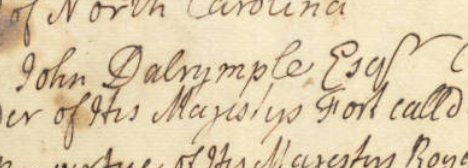 of North Carolina
John Dalrymple Esqr
der of His Majestys Fort calld
virtue of His Majestys Roy